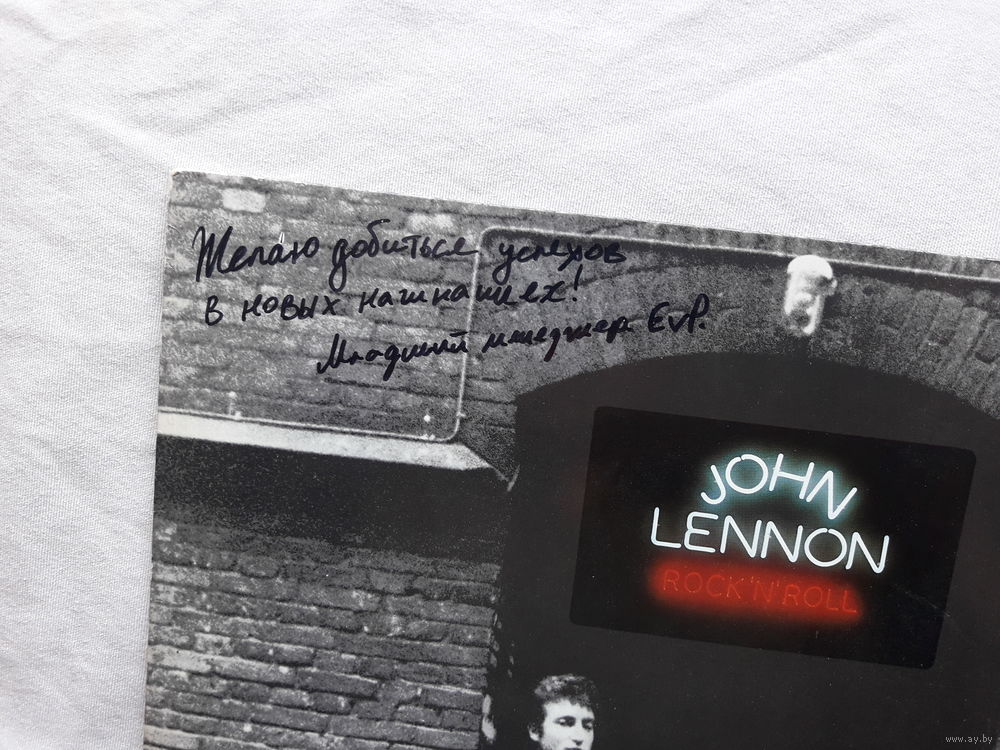 Желаю добиться успехов
в новых начинаниех!
Младший менеджер EvP.
JOHN
LENNON
ROCK'N'ROLL
www.ay.by